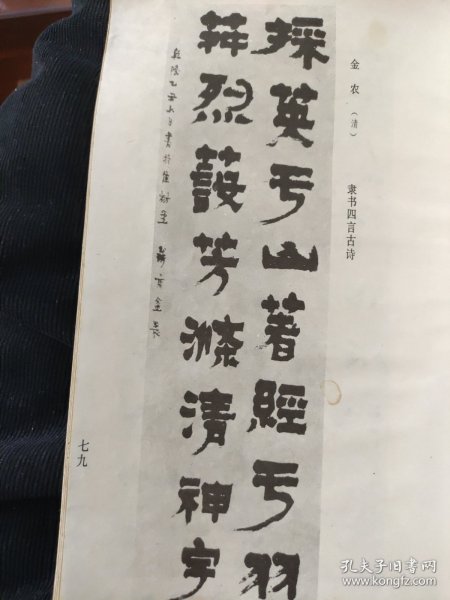 金农（清） 隶书四言古诗
採英于山著經于羽
荈烈蔎芳滌清神宇
乾隆乙 書於 金農
七九
孔夫子旧书网
www.kongfz.com